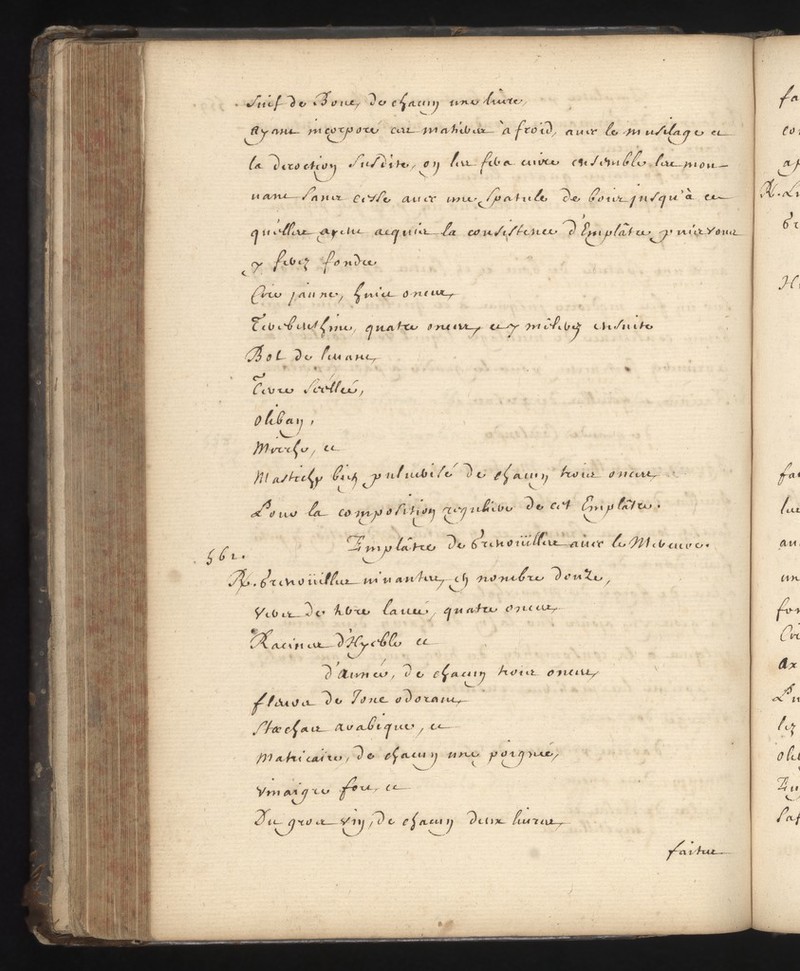 Suif de Bouc, de chacun une livre,
Ayant incorporé ces matieres à froid, avec le musilage et
la decoction susdite, on les fera cuire ensemble les mou-
vant sans cesse avec une spatule de bois jusqu'à ce
qu'elles ayent acquis la consistence d'Emplâtre, puis vous
y ferez fondre
Cire jaune, huict onces,
Terebenthine, quatre onces, et y mélerez ensuite
Bol de levant,
Terre Scellée,
oliban,
Mirrhe, et
Mastich bien pulverisé de chacun trois onces,
Pour la composition reguliere de cet Emplâtre.
562. Emplâtre de Grenoüilles avec le Mercure.
℞. Grenoüilles vivantes, en nombre douze,
Vers de terre lavés, quatre onces,
Racines d'Hyeble et
d'Aunée, de chacun trois onces,
fleurs de Jonc odorant,
Stœchas arabique, et
Matricaire, de chacun une poignée,
Vinaigre fort, et
Du gros vin, de chacun deux livres,
faites